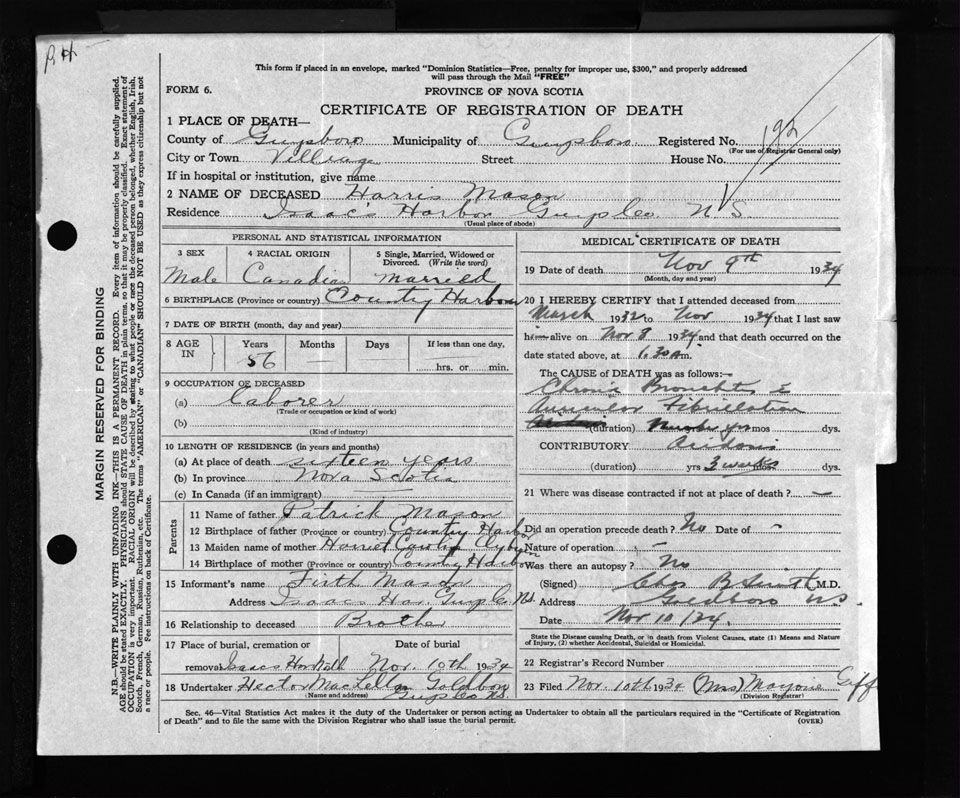 This form if placed in an envelope, marked "Dominion Statistics—Free, penalty for improper use, $300," and properly addressed
will pass through the Mail "FREE"
FORM 6.
PROVINCE OF NOVA SCOTIA
CERTIFICATE OF REGISTRATION OF DEATH
1 PLACE OF DEATH—
County of Guysboro Municipality of Guysboro Registered No. 192
(For use of Registrar General only)
City or Town Villiage Street House No.
If in hospital or institution, give name
2 NAME OF DECEASED Harris Mason
Residence Isaac's Harbor Guys Co. N.S.
(Usual place of abode)
PERSONAL AND STATISTICAL INFORMATION
3 SEX 4 RACIAL ORIGIN 5 Single, Married, Widowed or Divorced. (Write the word)
Male Canadian Married
6 BIRTHPLACE (Province or country) Country Harbour
7 DATE OF BIRTH (month, day and year)
8 AGE IN Years Months Days If less than one day,
56 — — hrs. or min.
9 OCCUPATION OF DECEASED
(a) Laborer
(Trade or occupation or kind of work)
(b)
(Kind of industry)
10 LENGTH OF RESIDENCE (in years and months)
(a) At place of death sixteen years
(b) In province Nova Scotia
(c) In Canada (if an immigrant) —
Parents
11 Name of father Patrick Mason
12 Birthplace of father (Province or country) Country Harbor
13 Maiden name of mother Harriet
14 Birthplace of mother (Province or country) County Harbor
15 Informant's name Firth Mason
Address Isaacs Har. Guys Co N.S.
16 Relationship to deceased Brother
17 Place of burial, cremation or removal Isaacs Har Date of burial Nov. 10th 1934
18 Undertaker Hector MacLellan Goldboro
(Name and address) Guys Co N.S.
MEDICAL CERTIFICATE OF DEATH
19 Date of death Nov 9th 1934
(Month, day and year)
20 I HEREBY CERTIFY that I attended deceased from
March 1932 to Nov 1934 that I last saw
him alive on Nov 8 1934 and that death occurred on the
date stated above, at 1.30 a.m.
The CAUSE of DEATH was as follows:—
Chronic Bronchitis &
Auricular Fibrillation
(duration) yrs mos dys.
CONTRIBUTORY
(duration) yrs 3 weeks mos dys.
21 Where was disease contracted if not at place of death? —
Did an operation precede death? No Date of -
Nature of operation -
Was there an autopsy? No
(Signed) Chas B Smith M.D.
Address Goldboro N.S.
Date Nov 10/34.
State the Disease causing Death, or in death from Violent Causes, state (1) Means and Nature
of Injury, (2) whether Accidental, Suicidal or Homicidal.
22 Registrar's Record Number
23 Filed Nov. 10th 1934 (Mrs) Mayone Giff
(Division Registrar)
Sec. 46—Vital Statistics Act makes it the duty of the Undertaker or person acting as Undertaker to obtain all the particulars required in the "Certificate of Registration
of Death" and to file the same with the Division Registrar who shall issue the burial permit.
(OVER)
MARGIN RESERVED FOR BINDING
N.B.—WRITE PLAINLY WITH UNFADING INK—THIS IS A PERMANENT RECORD. Every item of information should be carefully supplied.
AGE should be stated EXACTLY. PHYSICIANS should STATE CAUSE OF DEATH in plain terms, so that it may be properly classified. Exact statement of
OCCUPATION is very important. RACIAL ORIGIN will be described by stating to what people or race the deceased person belonged, whether English, Irish,
Scotch, French, German, Russian, Ruthenian, etc. The terms "AMERICAN" or "CANADIAN" SHOULD NOT BE USED as they express citizenship but not
a race or people. See instructions on back of Certificate.